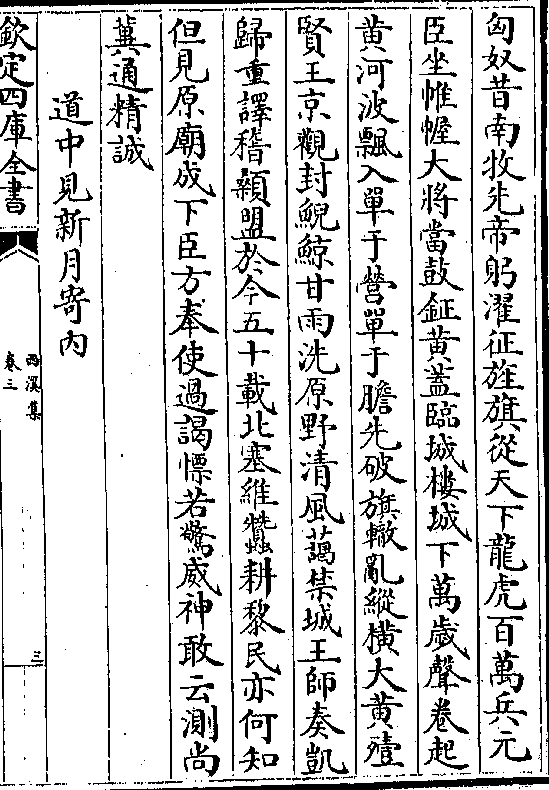 匈奴昔南牧先帝躬濯征旌旗從天下龍虎百萬兵元
臣坐帷幄大將當鼓鉦黄蓋臨城樓城下萬歳聲卷起
黄河波飄入單于營單于膽先破旗轍亂縱横大黄殪
賢王京觀封鯢鯨甘雨洗原野清風藹禁城王師奏凱
歸重譯稽顙盟於今五十載北塞維蠶耕黎民亦何知
但見原廟成下臣方奉使過謁慓若驚威神敢云測尚
冀通精誠
道中見新月寄内
欽定四庫全書
西溪集
卷三
三